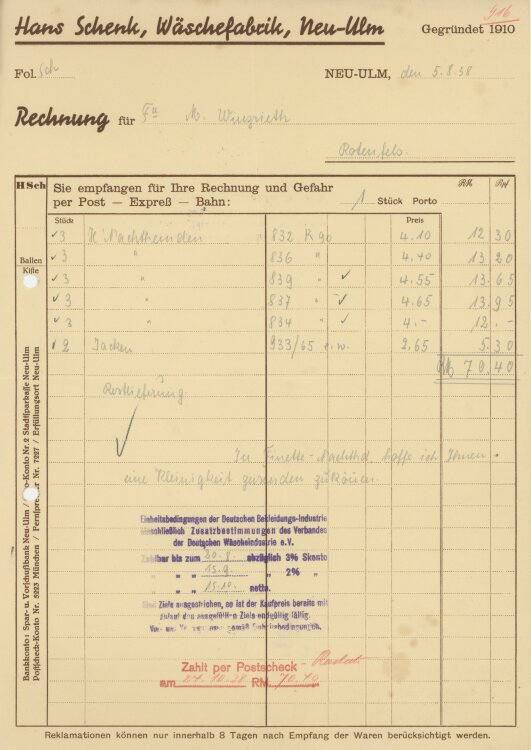 916
Hans Schenk, Wäschefabrik, Neu-Ulm Gegründet 1910
Fol. Sch NEU-ULM, den 5.8.38
Rechnung für Fa M. Winzrieth
Rotenfels.
H Sch Sie empfangen für Ihre Rechnung und Gefahr
per Post — Expreß — Bahn: 1 Stück Porto RM Rpf
Stück Preis
3 K'Nachthemden 832 R 90 4.10 12 30
3 " 836 " 4.40 13 20
Ballen
Kiste
3 " 839 " 4.55 13.65
3 " 837 " 4.65 13.95
3 " 834 " 4.- 12.-
2 Jacken 933/65 e.w. 2,65 5.30
RM 70.40
Restlieferung
In Finette-Nachthd. hoffe ich Ihnen
eine Kleinigkeit zusenden zu können.
Einheitsbedingungen der Deutschen Bekleidungs-Industrie
einschließlich Zusatzbestimmungen des Verbandes
der Deutschen Wäscheindustrie e.V.
Zahlbar bis zum 20.8. abzüglich 3% Skonto
" " " 15.9. " 2% "
" " " 15.10. netto.
Sind Ziele ausgestrichen, so ist der Kaufpreis bereits mit
Ablauf des ausgefüllten Ziels endgültig fällig.
Zahlt per Postscheck -
am 27.10.38 RM 70.40
Bankkonto: Spar- u. Vorschußbank Neu-Ulm / -Konto Nr. 2 Stadtsparkasse Neu-Ulm
Postscheck-Konto Nr. 5223 München / Fernsprecher Nr. 7227 / Erfüllungsort Neu-Ulm
Reklamationen können nur innerhalb 8 Tagen nach Empfang der Waren berücksichtigt werden.